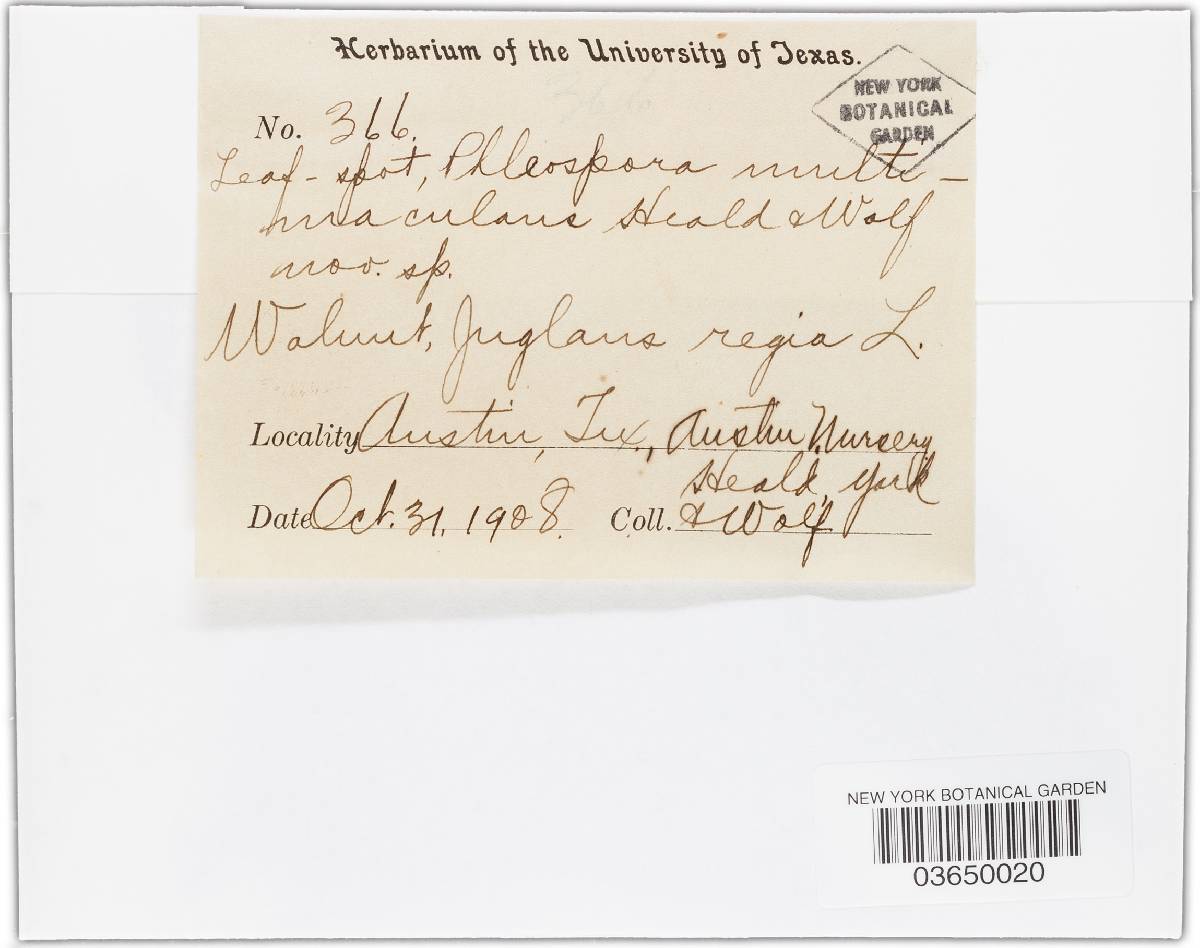 Herbarium of the University of Texas.
NEW YORK
BOTANICAL
GARDEN
No. 366.
Leaf-spot, Phleospora multi-
maculans Heald & Wolf
nov. sp.
Walnut, Juglans regia L.
Locality Austin, Tex., Austin Nursery
Date Oct. 31, 1908. Coll. Heald, York
& Wolf
NEW YORK BOTANICAL GARDEN
03650020